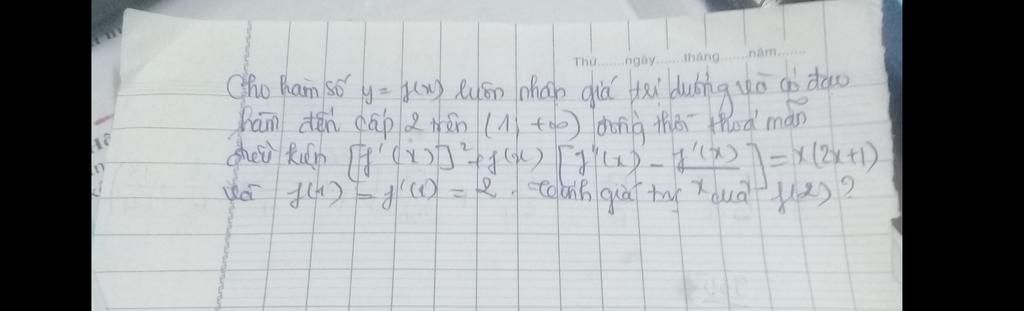 Thứ......ngày......tháng......năm.......
Cho hàm số y = f(x) luôn nhận giá trị dương và có đạo
hàm đến cấp 2 trên (1; +∞) đồng thời thoả mãn
điều kiện [f'(x)]² + f(x) [f''(x) - f'(x)/x] = x(2x+1)
và f(1) = f'(1) = 2. Tính giá trị của f(2)?